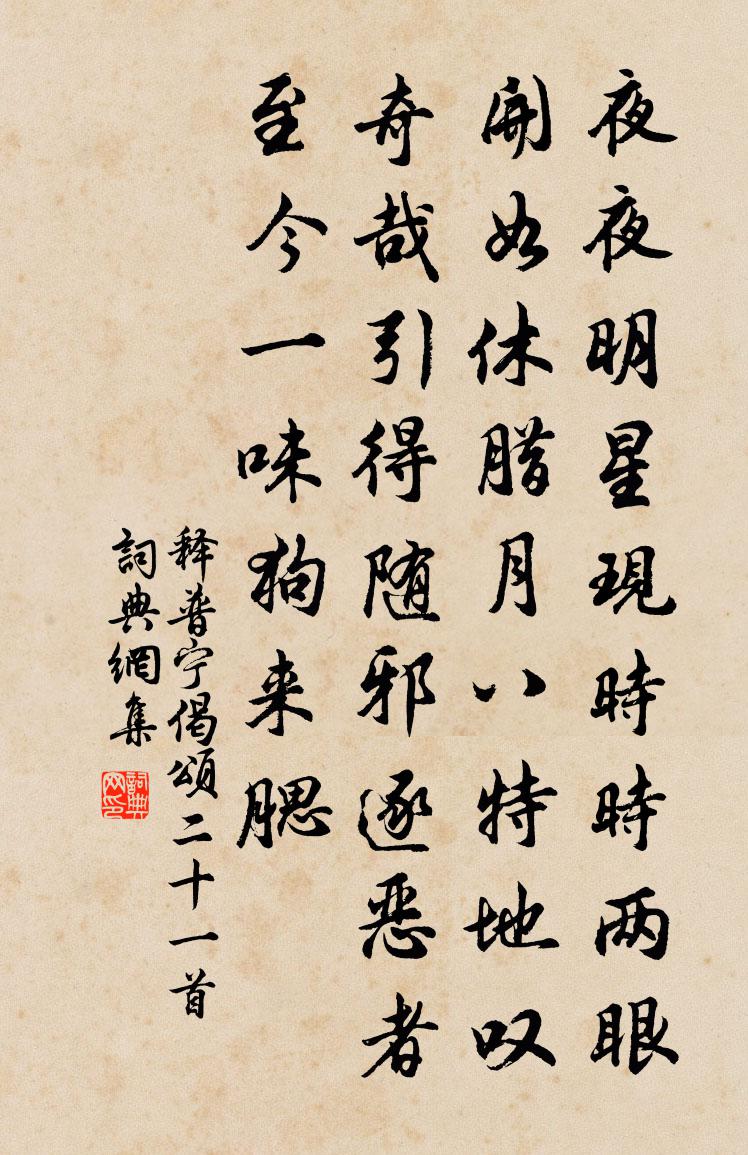 夜夜明星現時時两眼
開如休腊月八特地叹
奇哉引得随邪逐恶者
至今一味狗来腮
释普宁偈頌二十一首
詞典網集
詞典网印